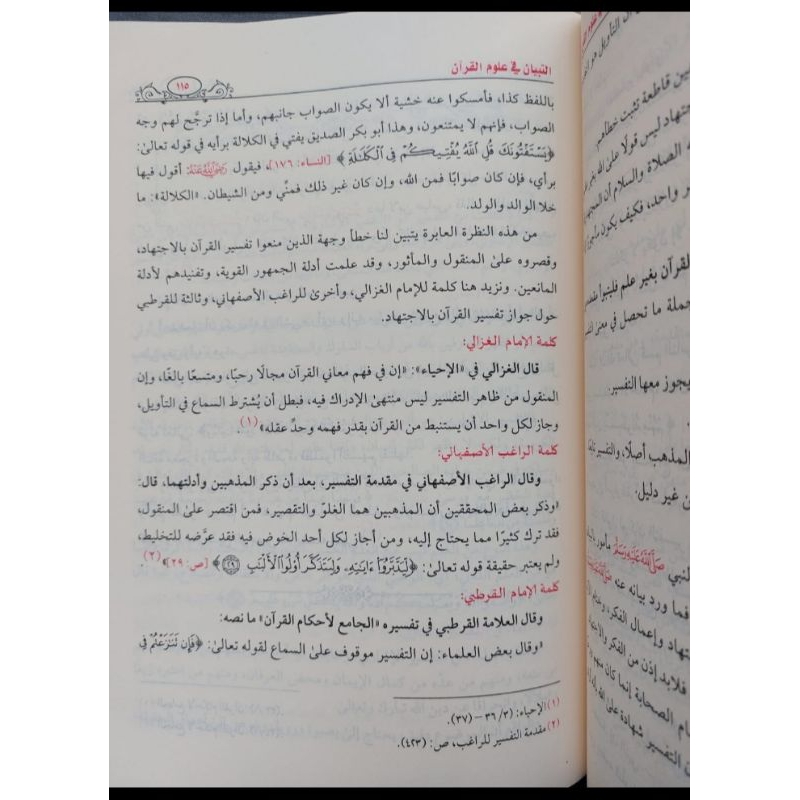 التبيان في علوم القرآن
١١٥
باللفظ كذا، فأمسكوا عنه خشية ألا يكون الصواب جانبهم، وأما إذا ترجَّح لهم وجه
الصواب، فإنهم لا يمتنعون، وهذا أبو بكر الصديق يفتي في الكلالة برأيه في قوله تعالىٰ:
﴿يَسْتَفْتُونَكَ قُلِ ٱللَّهُ يُفْتِيكُمْ فِي ٱلْكَلَـٰلَةِ﴾ [النساء: ١٧٦]، فيقول رَضِيَ اللَّهُ عَنْهُ: أقول فيها
برأي، فإن كان صوابًا فمن الله، وإن كان غير ذلك فمنِّي ومن الشيطان. «الكلالة»: ما
خلا الوالد والولد.
من هذه النظرة العابرة يتبين لنا خطأ وجهة الذين منعوا تفسير القرآن بالاجتهاد،
وقصروه علىٰ المنقول والمأثور، وقد علمت أدلة الجمهور القوية، وتفنيدهم لأدلة
المانعين. ونزيد هنا كلمة للإمام الغزالي، وأخرىٰ للراغب الأصفهاني، وثالثة للقرطبي
حول جواز تفسير القرآن بالاجتهاد.
كلمة الإمام الغزالي:
قال الغزالي في «الإحياء»: «إن في فهم معاني القرآن مجالًا رحبًا، ومتسعًا بالغًا، وإن
المنقول من ظاهر التفسير ليس منتهىٰ الإدراك فيه، فبطل أن يُشترط السماع في التأويل،
وجاز لكل واحد أن يستنبط من القرآن بقدر فهمه وحدِّ عقله» (١).
كلمة الراغب الأصفهاني:
وقال الراغب الأصفهاني في مقدمة التفسير، بعد أن ذكر المذهبين وأدلتهما، قال:
«وذكر بعض المحققين أن المذهبين هما الغلوّ والتقصير، فمن اقتصر علىٰ المنقول،
فقد ترك كثيرًا مما يحتاج إليه، ومن أجاز لكل أحد الخوض فيه فقد عرَّضه للتخليط،
ولم يعتبر حقيقة قوله تعالىٰ: ﴿لِّيَدَّبَّرُوٓا۟ ءَايَـٰتِهِۦ وَلِيَتَذَكَّرَ أُو۟لُوا۟ ٱلْأَلْبَـٰبِ ٢٩﴾ [ص: ٢٩]» (٢).
كلمة الإمام القرطبي:
وقال العلامة القرطبي في تفسيره «الجامع لأحكام القرآن» ما نصه:
«وقال بعض العلماء: إن التفسير موقوف علىٰ السماع لقوله تعالىٰ: ﴿فَإِن تَنَـٰزَعْتُمْ فِي
(١) الإحياء: (٣/ ٣٦ - ٣٧).
(٢) مقدمة التفسير للراغب، ص: (٤٢٣).